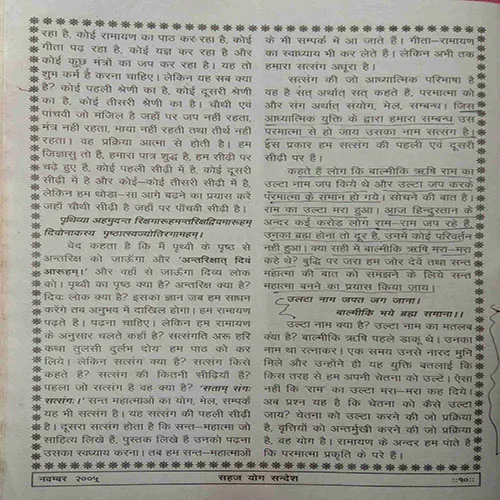 रहा है, कोई रामायण का पाठ कर रहा है, कोई
गीता पढ़ रहा है, कोई यज्ञ कर रहा है और
कोई कुछ मंत्रो का जप कर रहा है। यह तो
शुभ कर्म है करना चाहिए। लेकिन यह सब क्या
है? कोई पहली श्रेणी का है, कोई दूसरी श्रेणी
का है, कोई तीसरी श्रेणी का है। चौथी एवं
पांचवी जो मंजिल है जहाँ पर जप नही रहता,
मंत्र नही रहता, माया नही रहती तथा तीर्थ नही
रहता। वह प्रक्रिया आत्मा से होती है। हम
जिज्ञासु तो हैं, हमारा पात्र शुद्ध है, हम सीढ़ी पर
चढ़े हुए हैं, कोई पहली सीढ़ी में है, कोई दूसरी
सीढ़ी में है और कोई-कोई तीसरी सीढ़ी में है,
लेकिन हम थोड़ा-सा आगे बढ़ने का प्रयास करें
जहाँ चौथी सीढ़ी है जहाँ पर पाँचवी सीढ़ी है।
पृथिव्या अहमुदन्त रिक्षमारूहमन्तरिक्षाद्दिवमारूहम्
दिवोनाकस्य पृष्ठात्स्वज्योतिरगामहम्।
वेद कहता है कि मैं पृथ्वी के पृष्ठ से
अन्तरिक्ष को जाऊँगा और 'अन्तरिक्षात् दिवं
आरूहम्।' और वहाँ से जाऊँगा दिव्य लोक
को। पृथ्वी का पृष्ठ क्या है? अन्तरिक्ष क्या है?
दिवः लोक क्या है? इसका ज्ञान जब हम साधन
करेंगे तब अनुभव में दाखिल होगा। हम रामायण
पढ़ते हैं। पढ़ना चाहिए। लेकिन हम रामायण
के अनुसार चलते कहाँ है? सत्संगति अरू हरि
कथा तुलसी दुर्लभ दोय हम पाठ को कर
लिये। लेकिन सत्संग क्या है? सत्संग किसे
कहते हैं? सत्संग की कितनी सीढ़ियाँ हैं?
पहला जो सत्संग है वह क्या है? 'सताम् संगः
सत्संगः।' सन्त महात्माओं का योग, मेल, सम्पर्क
यह भी सत्संग है। यह सत्संग की पहली सीढ़ी
है। दूसरा सत्संग होता है कि सन्त-महात्मा जो
साहित्य लिखे हैं, पुस्तक लिखे हैं उनको पढ़ना
उसका स्वध्याय करना। तब हम सन्त-महात्माओं
के भी सम्पर्क में आ जाते हैं। गीता-रामायण
का स्वाध्याय भी कर लेते हैं। लेकिन अभी तक
हमारा सत्संग अधूरा है।
सत्संग की जो आध्यात्मिक परिभाषा है
वह है सत् अर्थात् सत् कहते हैं, परमात्मा को
और संग अर्थात् संयोग, मेल, सम्बन्ध। जिस
आध्यात्मिक युक्ति के द्वारा हमारा सम्बन्ध उस
परमात्मा से हो जाय उसका नाम सत्संग है।
इस प्रकार हम सत्संग की पहली एवं दूसरी
सीढ़ी पर हैं।
कहते हैं लोग कि बाल्मीकि ऋषि राम का
उल्टा नाम जप किये थे और उल्टा जप करके
परमात्मा के समान हो गये। सोचने की बात है।
राम का उल्टा मरा हुआ। आज हिन्दुस्तान के
अन्दर कई करोड़ लोग राम-राम जप रहे हैं,
उनका ब्रह्म होना तो दूर है, उनमें कोई परिवर्तन
नही हुआ। क्या सही मे बाल्मीकि ऋषि मरा-मरा
कहे थे? बुद्धि पर जरा हम जोर देवें तथा सन्त
महात्मा की बात को समझने के लिये सन्त
महात्मा बनने का प्रयास किया जाय।
उलटा नाम जपत जग जाना।
बाल्मीकि भये ब्रह्म समाना।।
उल्टा नाम क्या है? उल्टा नाम का मतलब
क्या है? बाल्मीकि ऋषि पहले डाकू थे। उनका
नाम था रत्नाकर। एक समय उनसे नारद मुनि
मिले और उन्होंने ही यह युक्ति बतलाई कि
किस तरह से हम अपनी चेतना को उल्टें। ऐसा
नही कि 'राम' का उल्टा मरा-मरा कह दिये।
अब प्रश्न यह है कि चेतना को कैसे उल्टा
जाय? चेतना को उल्टा करने की जो प्रक्रिया
है, वृत्तियों को अन्तर्मुखी करने की जो प्रक्रिया
है, वह योग है। रामायण के अन्दर हम पाते हैं
कि परमात्मा प्रकृति के परे हैं।
नवम्बर २००५
सहज योग सन्देश
::१०::